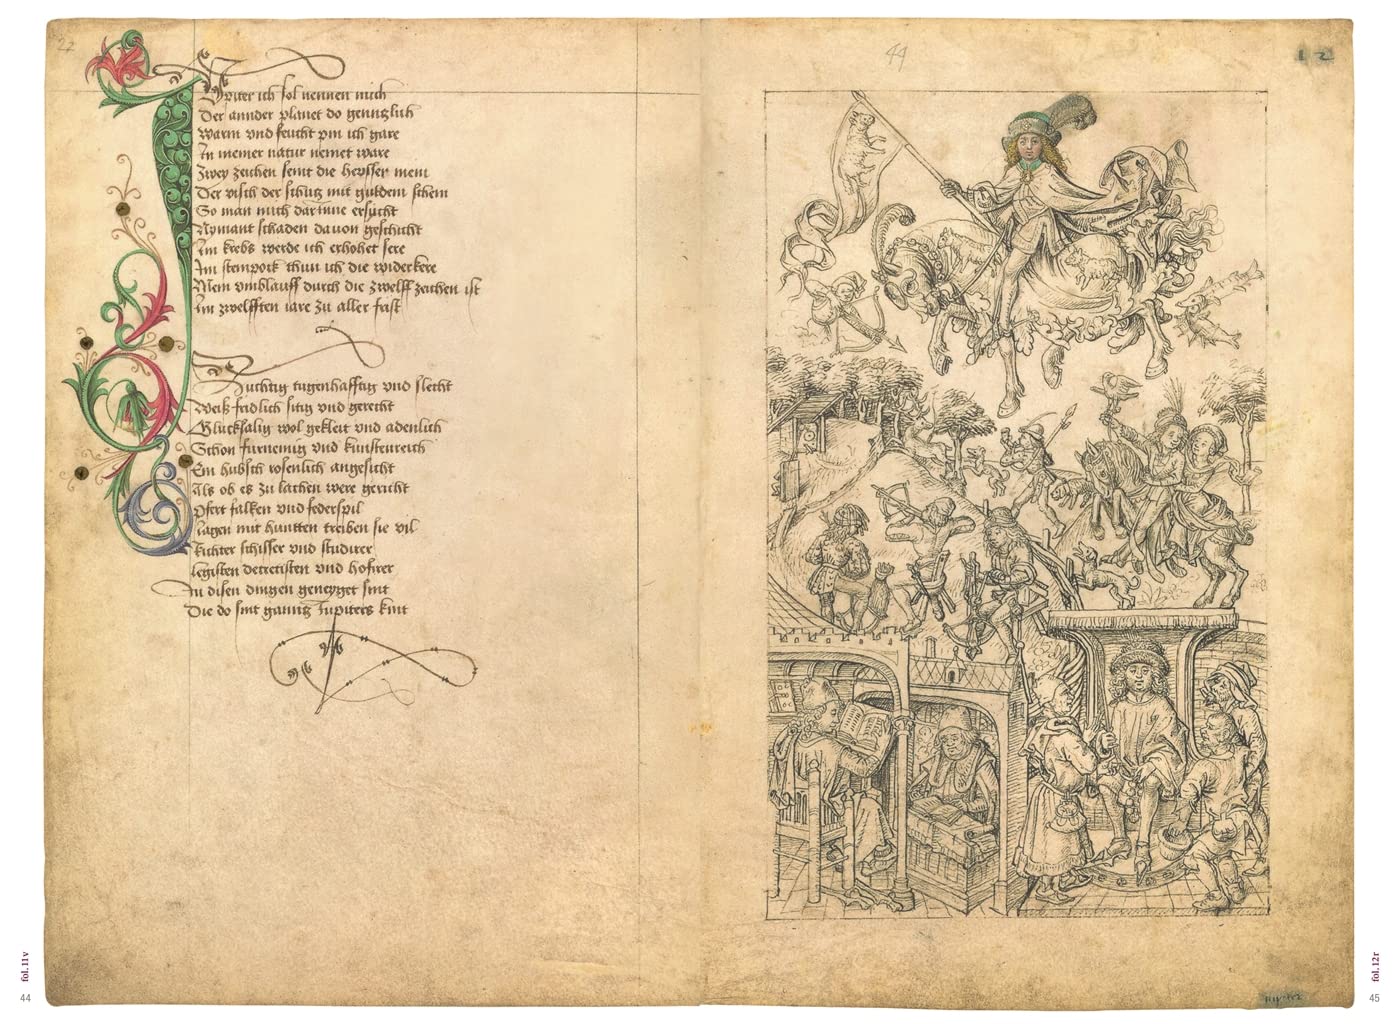 22
Jupiter ich sol nennen mich
Der annder planet do genuglich
Warm vnd feucht pin ich gare
In meiner natur nemet ware
Zwey zeichen seint die hewsser mein
Der visch der schutz mit guldem schein
So man mich darinne ersucht
Nymant schaden dauon geschicht
Im krebs werde ich erhohet sere
Im steinpock thun ich die widerkere
Mein vmblauff durch die zwelff zeichen ist
Im zwelfften iare zu aller frist
Zuchtig tugenhafftig vnd slecht
Weiß fridlich sitig vnd gerecht
Glucksalig wol gekleit vnd adenlich
Schon furnemig vnd kunstenreich
Ein hubsch rosenlich angesicht
Als ob es zu lachen were gericht
Pfert falken vnd federspil
Iagen mit huntten treiben sie vil
Richter schisser vnd studirer
legisten decretisten vnd hofirer
In disen dingen geneyget sint
Die do sint gannz Jupiters kint
fol. 11v
44
44
12
fol. 12r
45